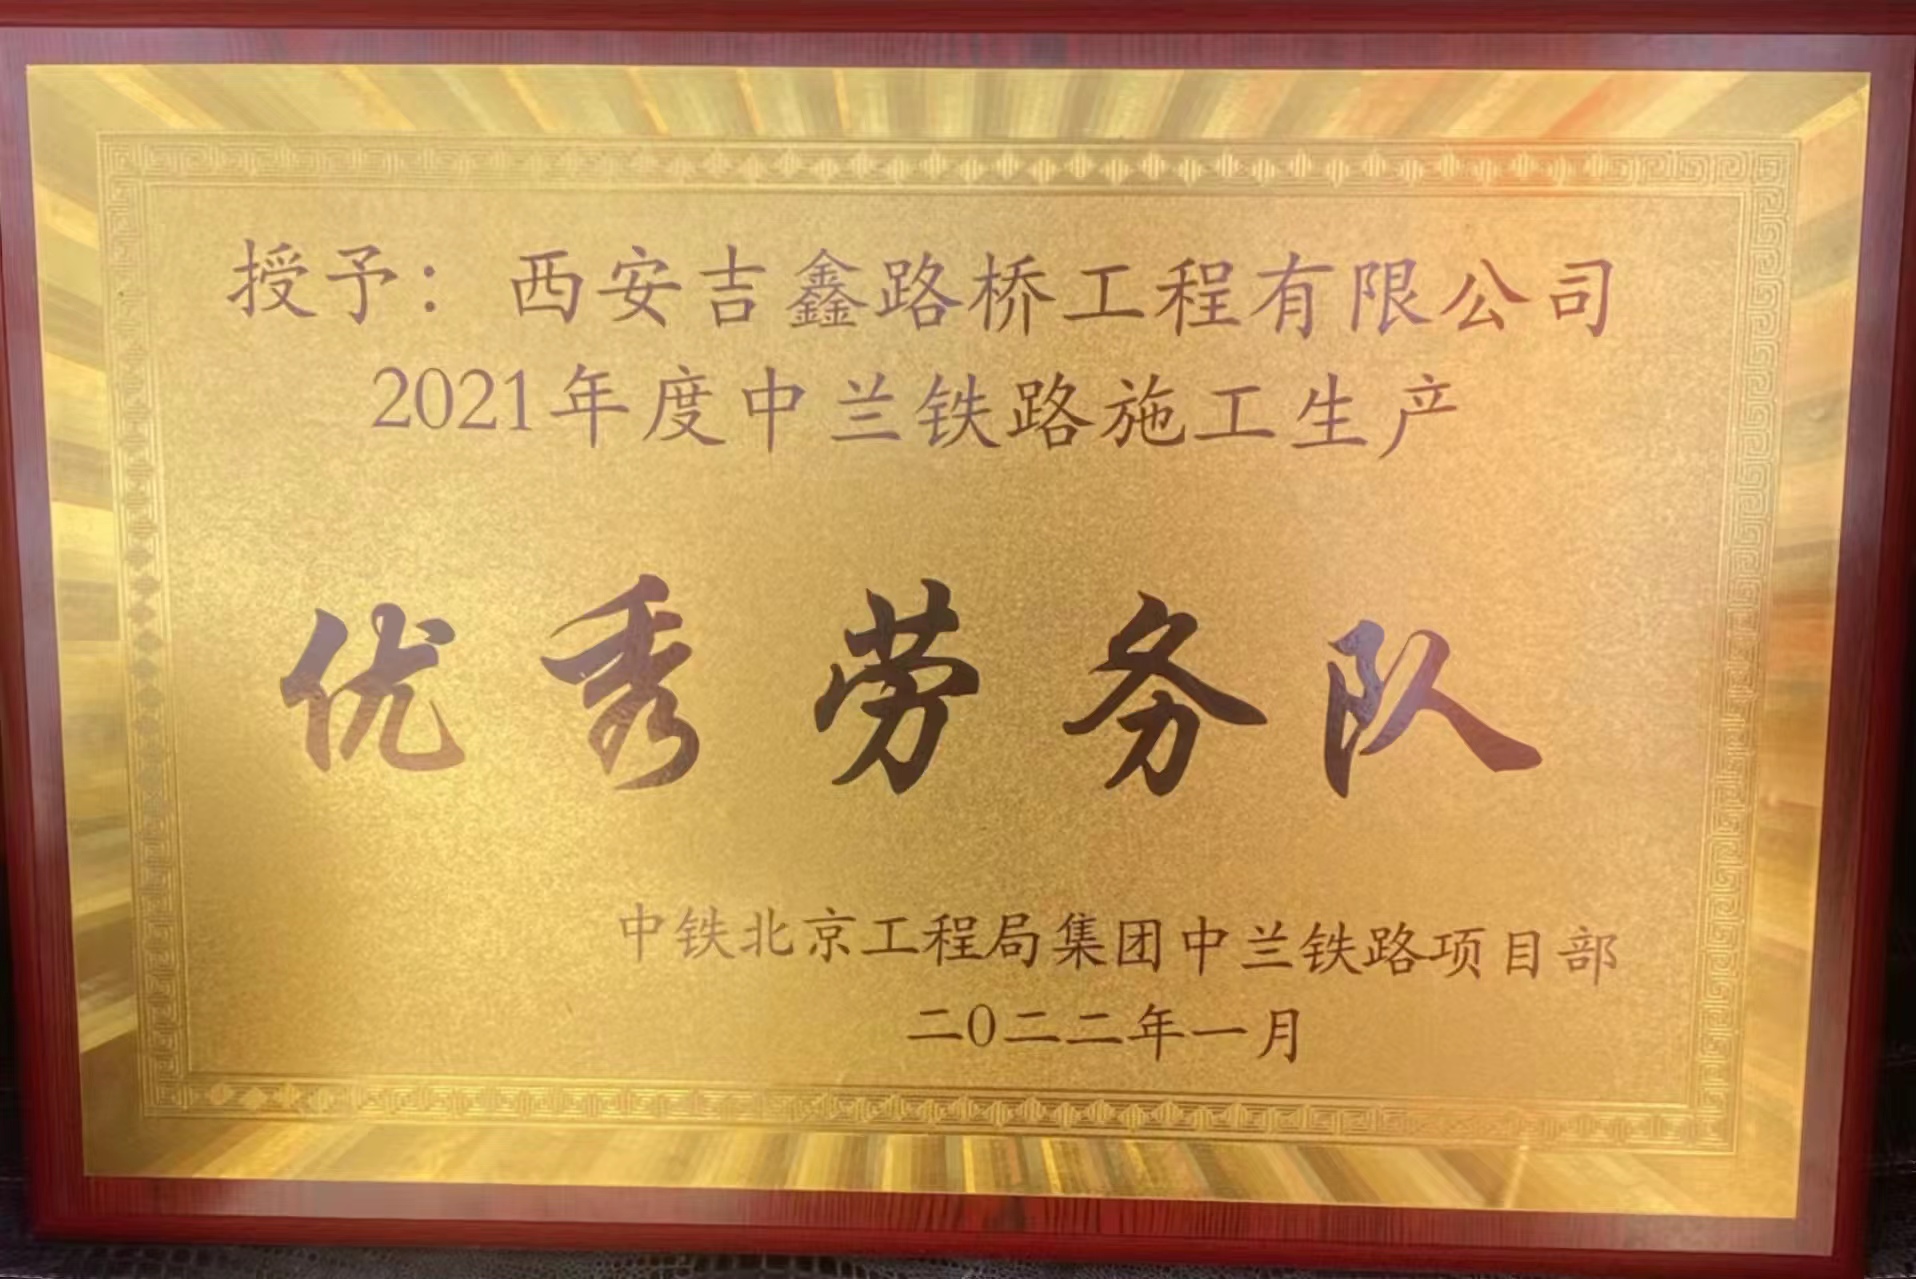 授予：西安吉鑫路桥工程有限公司
2021年度中兰铁路施工生产
优秀劳务队
中铁北京工程局集团中兰铁路项目部
二〇二二年一月